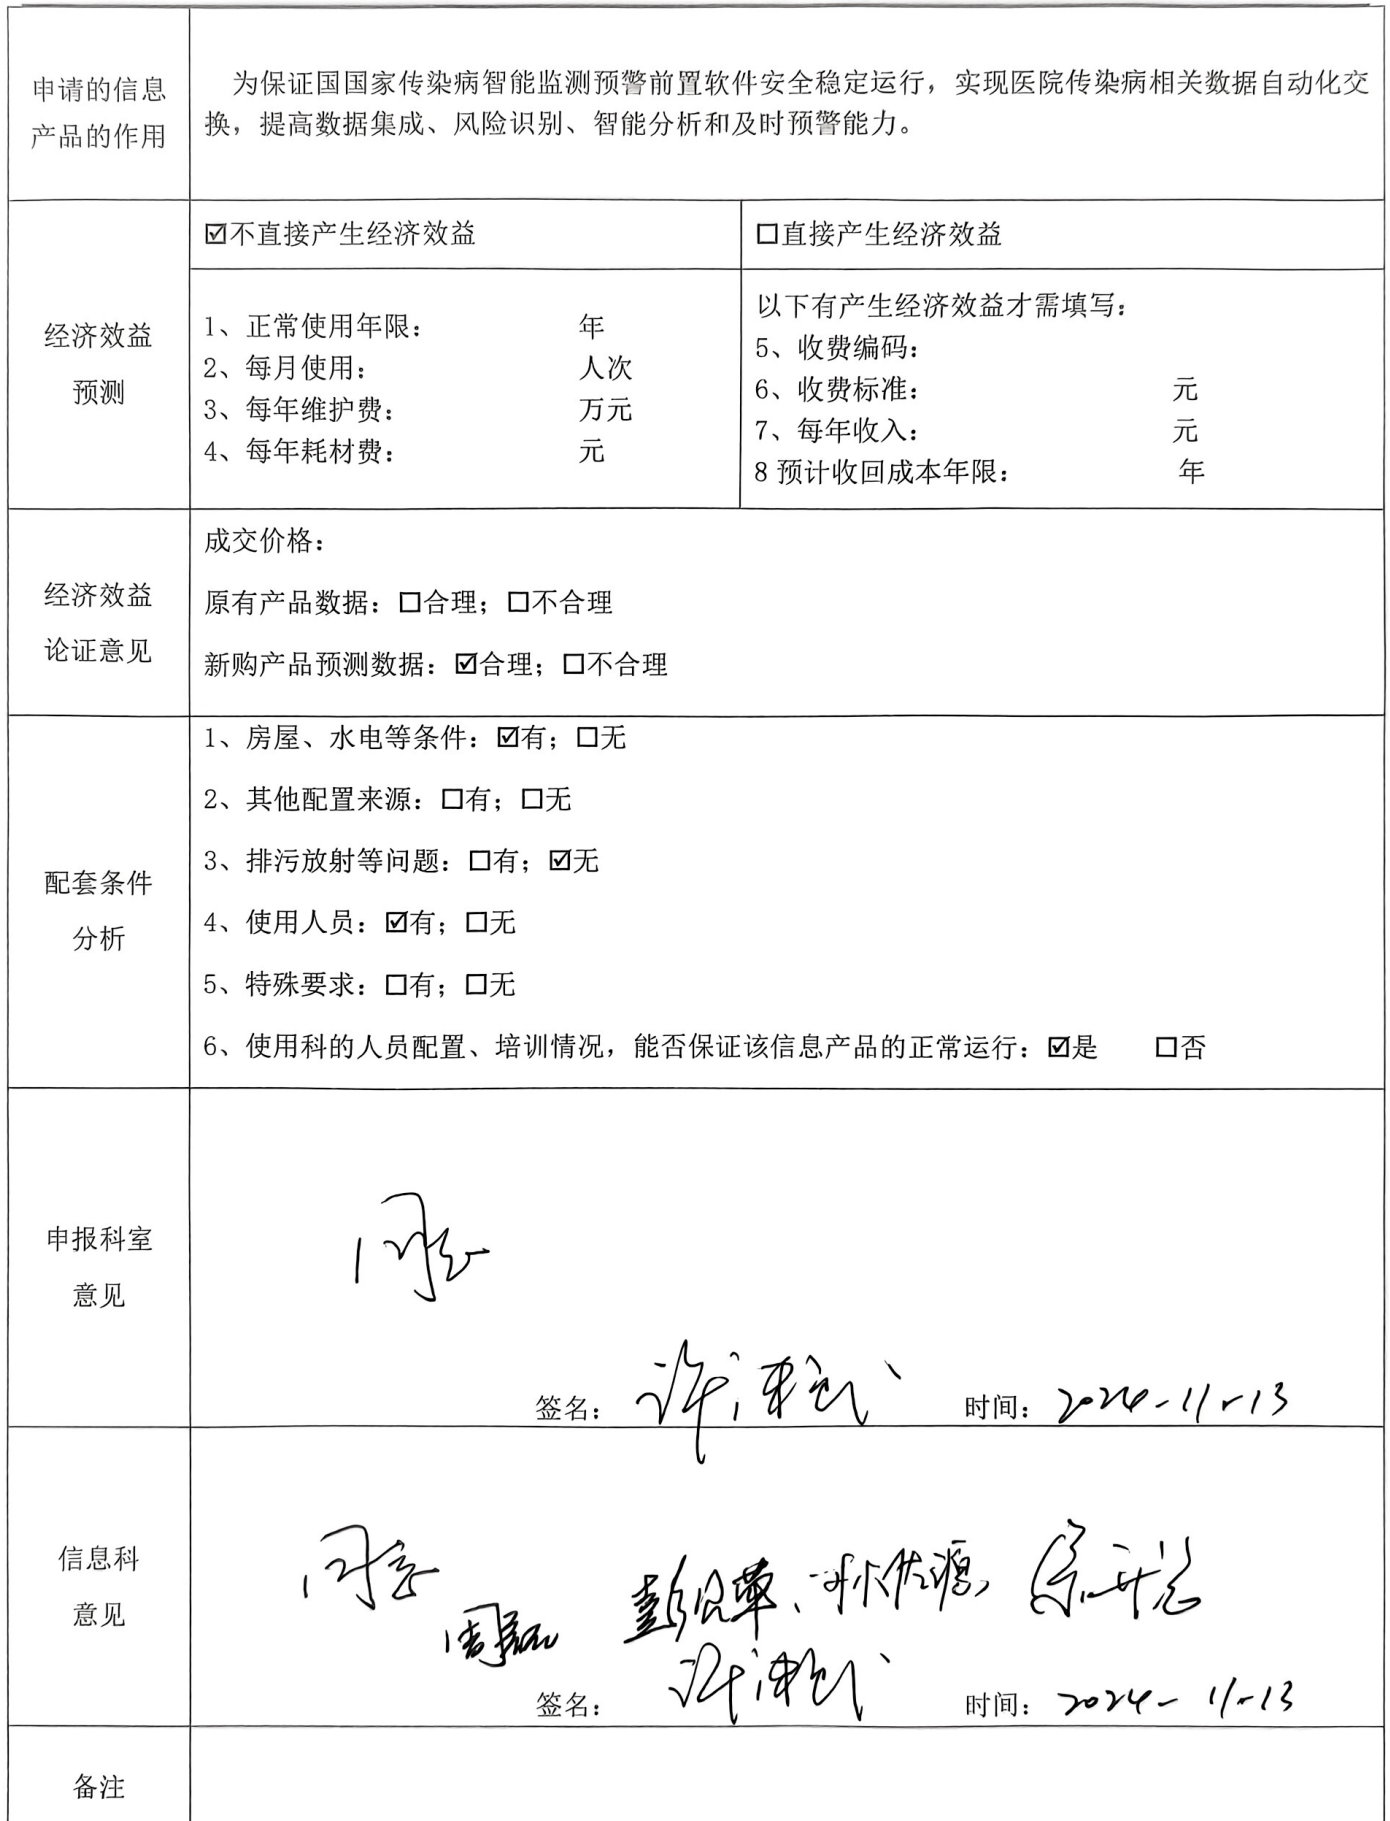 申请的信息
产品的作用
为保证国国家传染病智能监测预警前置软件安全稳定运行，实现医院传染病相关数据自动化交
换，提高数据集成、风险识别、智能分析和及时预警能力。
经济效益
预测
☑不直接产生经济效益
☐直接产生经济效益
1、正常使用年限： 年
2、每月使用： 人次
3、每年维护费： 万元
4、每年耗材费： 元
以下有产生经济效益才需填写：
5、收费编码：
6、收费标准： 元
7、每年收入： 元
8 预计收回成本年限： 年
经济效益
论证意见
成交价格：
原有产品数据：☐合理；☐不合理
新购产品预测数据：☑合理；☐不合理
配套条件
分析
1、房屋、水电等条件：☑有；☐无
2、其他配置来源：☐有；☐无
3、排污放射等问题：☐有；☑无
4、使用人员：☑有；☐无
5、特殊要求：☐有；☐无
6、使用科的人员配置、培训情况，能否保证该信息产品的正常运行：☑是 ☐否
申报科室
意见
同意
签名： 时间：2024-11-13
信息科
意见
同意
签名： 时间：2024-11-13
备注